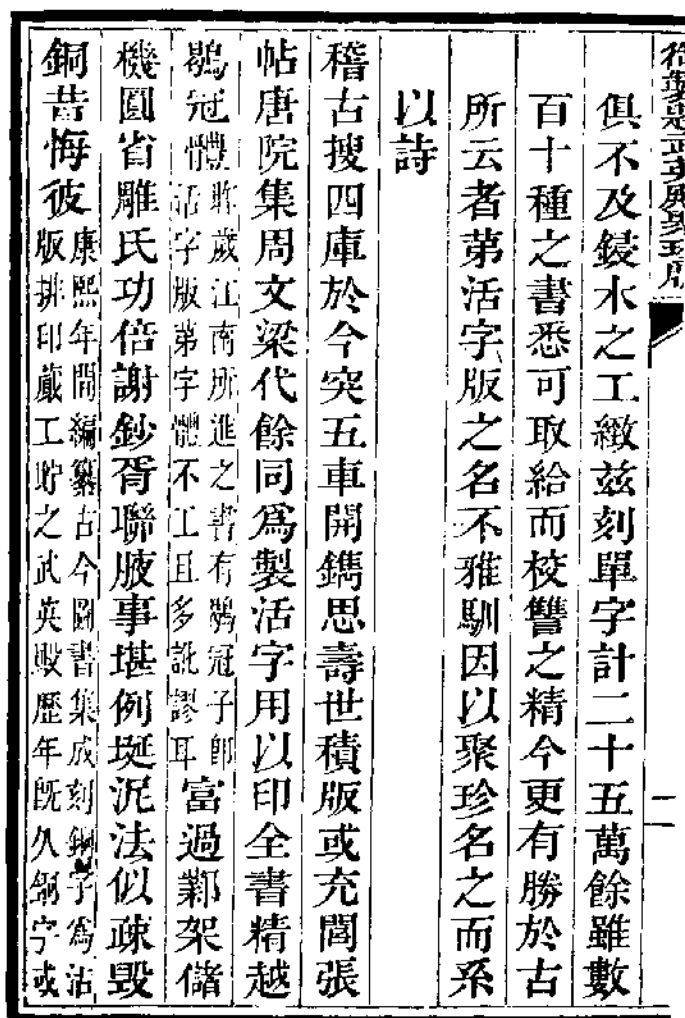 御製題武英殿聚珍版
二
俱不及鋟木之工緻兹刻單字計二十五萬餘雖數
百十種之書悉可取給而校讐之精今更有勝於古
所云者第活字版之名不雅馴因以聚珍名之而系
以詩
稽古搜四庫於今突五車開鐫思壽世積版或充閭張
帖唐院集周文梁代餘同爲製活字用以印全書精越
鶡冠體昨歲江南所進之書有鶡冠子即
活字版第字體不工且多訛謬耳富過鄴架儲
機圓省雕氏功倍謝鈔胥聯腋事堪例埏泥法似疎毁
銅昔悔彼康熙年間編纂古今圖書集成刻銅字爲活
版排印蕆工貯之武英殿歷年既久銅字或